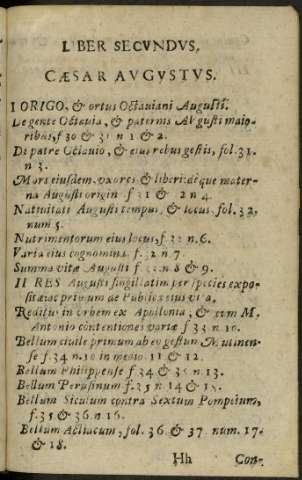 LIBER SECVNDVS,
CÆSAR AVGVSTVS.
I ORIGO, & ortus Octauiani Augusti.
De gente Octauia, & paternis Augusti maio-
ribus, f 30 & 31 n 1 & 2.
De patre Octauio, & eius rebus gestis, fol. 31.
n 3.
Mors eiusdem, vxores & liberi: atque mater-
na Augusti origin f 31 & 2 n 4.
Natiuitatis Augusti tempus, & locus, fol. 32,
num 5.
Nutrimentorum eius locus, f 32 n. 6.
Varia eius cognomina f. 32 n 7.
Summa vitæ Augusti f n 8 & 9.
II RES Augusti singillatim per species expo-
sitæ: ac primum de Publica eius vita.
Reditus in vrbem ex Apollonia, & cum M.
Antonio contentiones variæ f 33 n 10.
Bellum ciuile primum ab eo gestum Mutinen-
se f 34 n. 10 in medio 11 & 12.
Bellum Philippense f 34 & 35 n. 13.
Bellum Perusinum f. 35 n 14 & 15.
Bellum Siculum contra Sextum Pompeium,
f. 35 & 36. n 16.
Bellum Actiacum, fol. 36 & 37. num. 17.
& 18.
Hh Con-